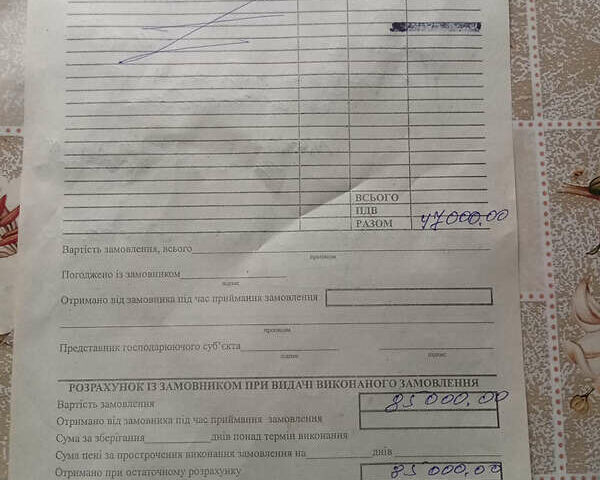 ВСЬОГО
ПДВ
РАЗОМ 47000,00
Вартість замовлення, всього
прописом
Погоджено із замовником
підпис
Отримано від замовника під час приймання замовлення
прописом
Представник господарюючого суб'єкта
підпис підпис
РОЗРАХУНОК ІЗ ЗАМОВНИКОМ ПРИ ВИДАЧІ ВИКОНАНОГО ЗАМОВЛЕННЯ
Вартість замовлення 85 000,00
Отримано від замовника під час приймання замовлення
Сума за зберігання днів понад термін виконання
Сума пені за прострочення виконання замовлення на днів
Отримано при остаточному розрахунку 85 000,00